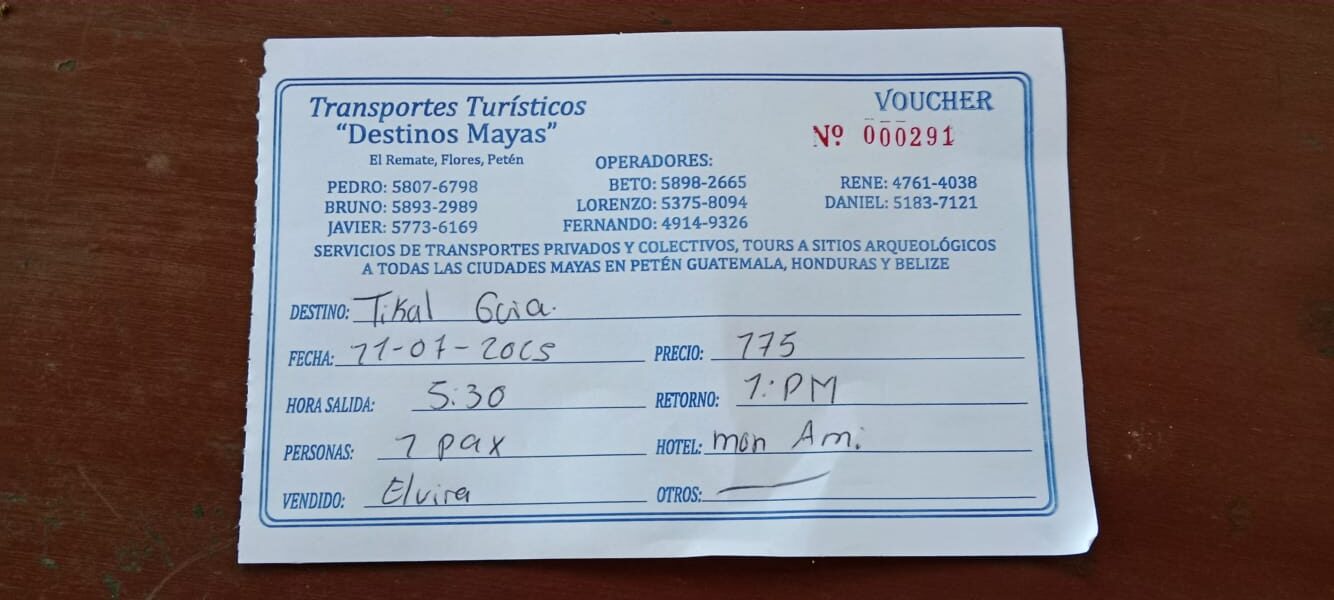 Transportes Turísticos
"Destinos Mayas"
El Remate, Flores, Petén
VOUCHER
Nº 000291
OPERADORES:
PEDRO: 5807-6798 BETO: 5898-2665 RENE: 4761-4038
BRUNO: 5893-2989 LORENZO: 5375-8094 DANIEL: 5183-7121
JAVIER: 5773-6169 FERNANDO: 4914-9326
SERVICIOS DE TRANSPORTES PRIVADOS Y COLECTIVOS, TOURS A SITIOS ARQUEOLÓGICOS
A TODAS LAS CIUDADES MAYAS EN PETÉN GUATEMALA, HONDURAS Y BELIZE
DESTINO: Tikal Guia.
FECHA: 11-07-2025 PRECIO: 175
HORA SALIDA: 5:30 RETORNO: 1:PM
PERSONAS: 1 pax HOTEL: mon Ami
VENDIDO: Elvira OTROS: